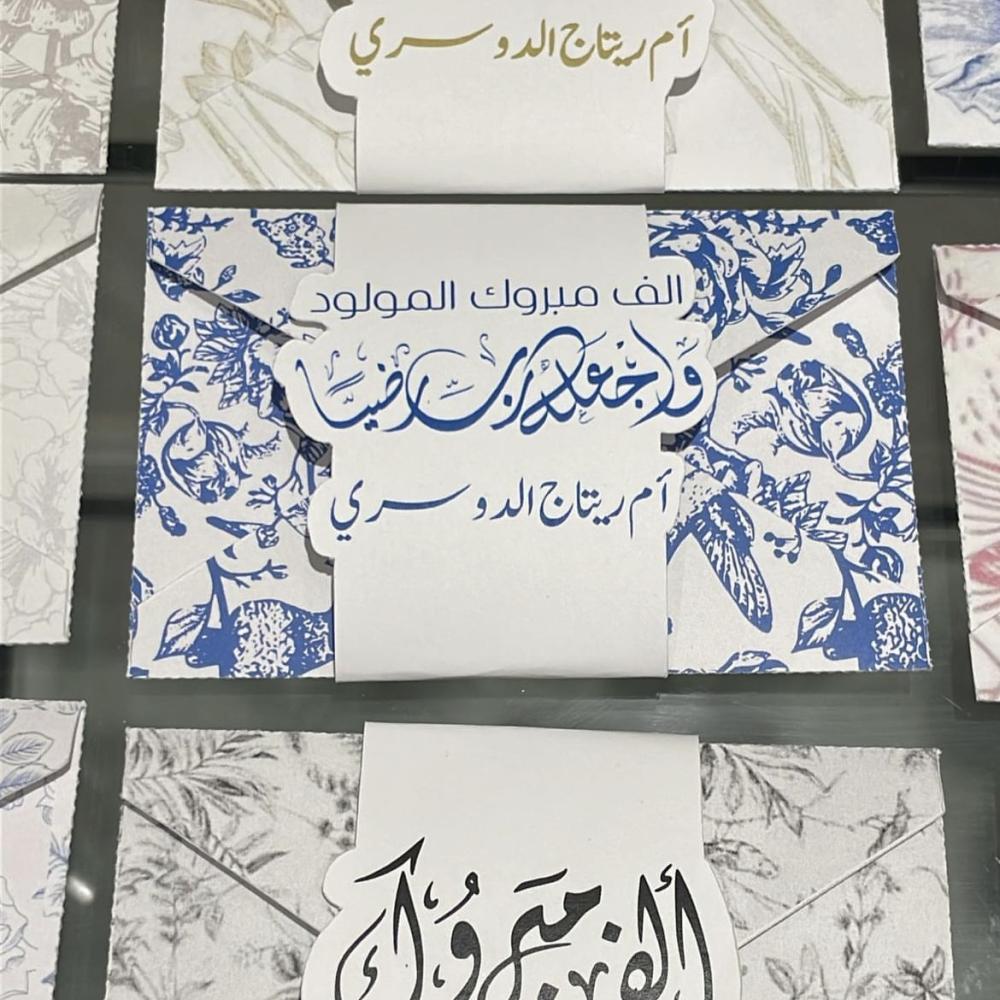 أم ريتاج الدوسري
الف مبروك المولود
وَاجْعَلْهُ رَبِّ رَضِيًّا
أم ريتاج الدوسري
ألف مبروك